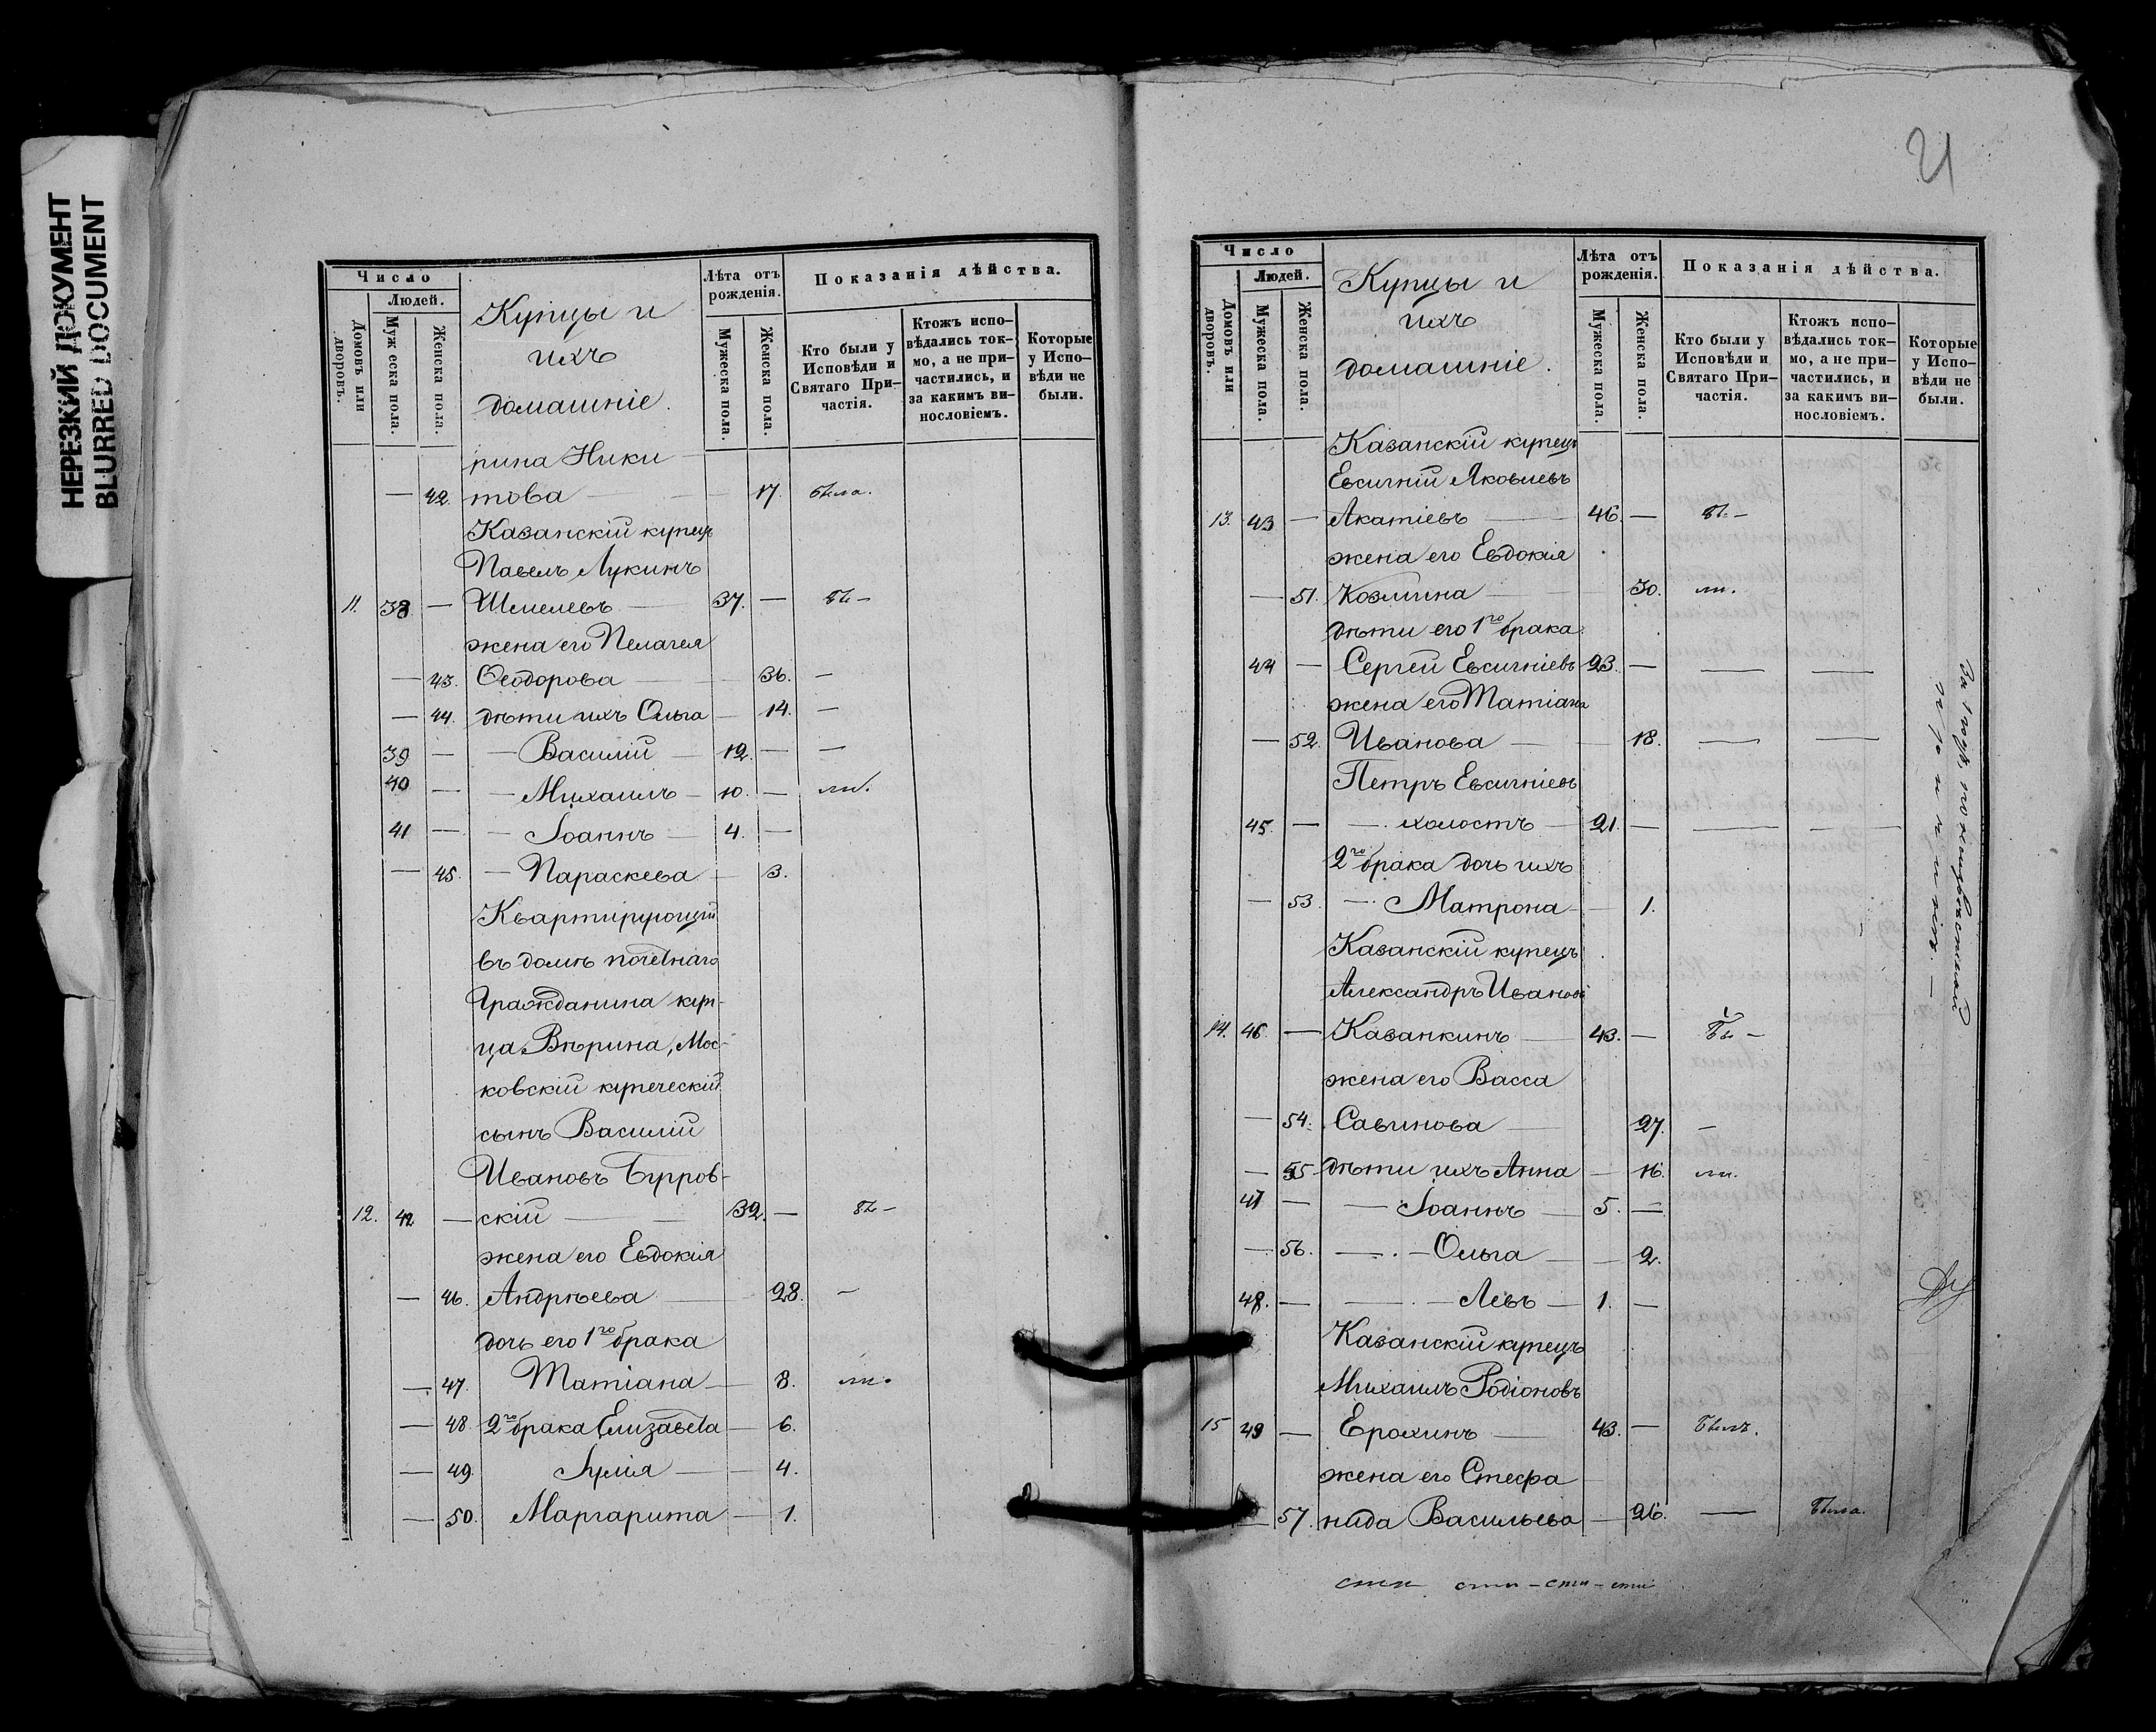 НЕРЕЗКИЙ ДОКУМЕНТ
BLURRED DOCUMENT
Число
Людей.
Домовъ или дворовъ.
Мужеска пола.
Женска пола.
Купцы и
ихъ
домашніе.
Лѣта отъ рожденія.
Мужеска пола.
Женска пола.
Показанія дѣйства.
Кто были у Исповѣди и Святаго При-частія.
Ктожъ испо-вѣдались ток-мо, а не при-частились, и за какимъ ви-нословіемъ.
Которые у Испо-вѣди не были.
рина Ники
— 42. това — 17. была.
Казанскій купецъ
Павелъ Лукинъ
11. 38 — Шмелевъ — 37. — бы —
жена его Пелагея
— 43. Ѳеодорова — 36. —
— 44. дѣти ихъ Ольга — 14. —
39 — — Василій — 12. — —
40 — — Михаилъ — 10. — ли.
41 — — Іоаннъ — 4. —
— 45. — Параскева — 3.
Квартирующій
въ домѣ почетнаго
Гражданина куп-
ца Вѣрина, Мос-
ковскій купеческій
сынъ Василій
Ивановъ Бурров-
12. 42 — скій — 32. — бы —
жена его Евдокія
— 46. Андрѣева — 28. —
дочь его 1го брака
— 47. Татіана — 8. ли.
— 48. 2го брака Елизавета — 6.
— 49. Лулія — 4.
— 50. Маргарита — 1.
21
Число
Людей.
Домовъ или дворовъ.
Мужеска пола.
Женска пола.
Купцы и
ихъ
домашніе.
Лѣта отъ рожденія.
Мужеска пола.
Женска пола.
Показанія дѣйства.
Кто были у Исповѣди и Святаго При-частія.
Ктожъ испо-вѣдались ток-мо, а не при-частились, и за какимъ ви-нословіемъ.
Которые у Испо-вѣди не были.
Казанскій купецъ
Евсигній Яковлевъ
13. 43 — Акатіевъ — 46. — бы —
жена его Евдокія
— 51. Козмина — 30. ли.
дѣти его 1го брака
44 — Сергей Евсигніевъ 23. — — —
жена его Татіана
— 52. Иванова — 18. — —
Петръ Евсигніевъ
45. — — холостъ — 21. — — —
2го брака дочь ихъ
— 53. — Матрона — 1.
Казанскій купецъ
Александръ Ивановъ
14. 46 — Казанкинъ — 43. — Бы —
жена его Васса
— 54. Савинова — 27. —
— 55 дѣти ихъ Анна — 16. ли.
47 — — Іоаннъ — 5. —
— 56. — Ольга — 2.
48. — — Левъ — 1. —
Казанскій купецъ
Михаилъ Родіоновъ
15 49 — Ерохинъ — 43. — Былъ.
жена его Стефа
— 57. нида Васильева — 26. — Была.